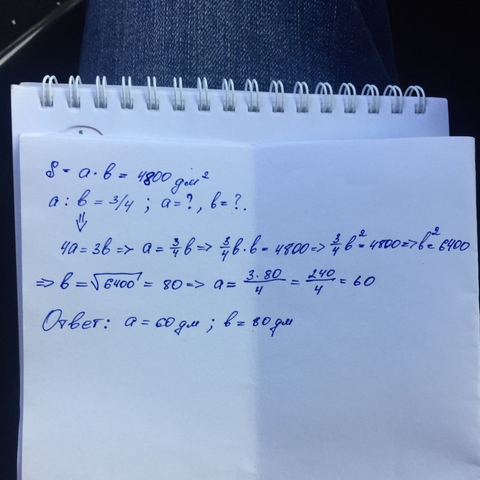 S = a · b = 4800 дм²
a : b = 3/4 ; a = ?, b = ?.
⇓
4a = 3b => a = 3/4 b => 3/4 b · b = 4800 => 3/4 b² = 4800 => b² = 6400
=> b = √6400 = 80 => a = 3·80/4 = 240/4 = 60
Ответ: a = 60 дм ; b = 80 дм